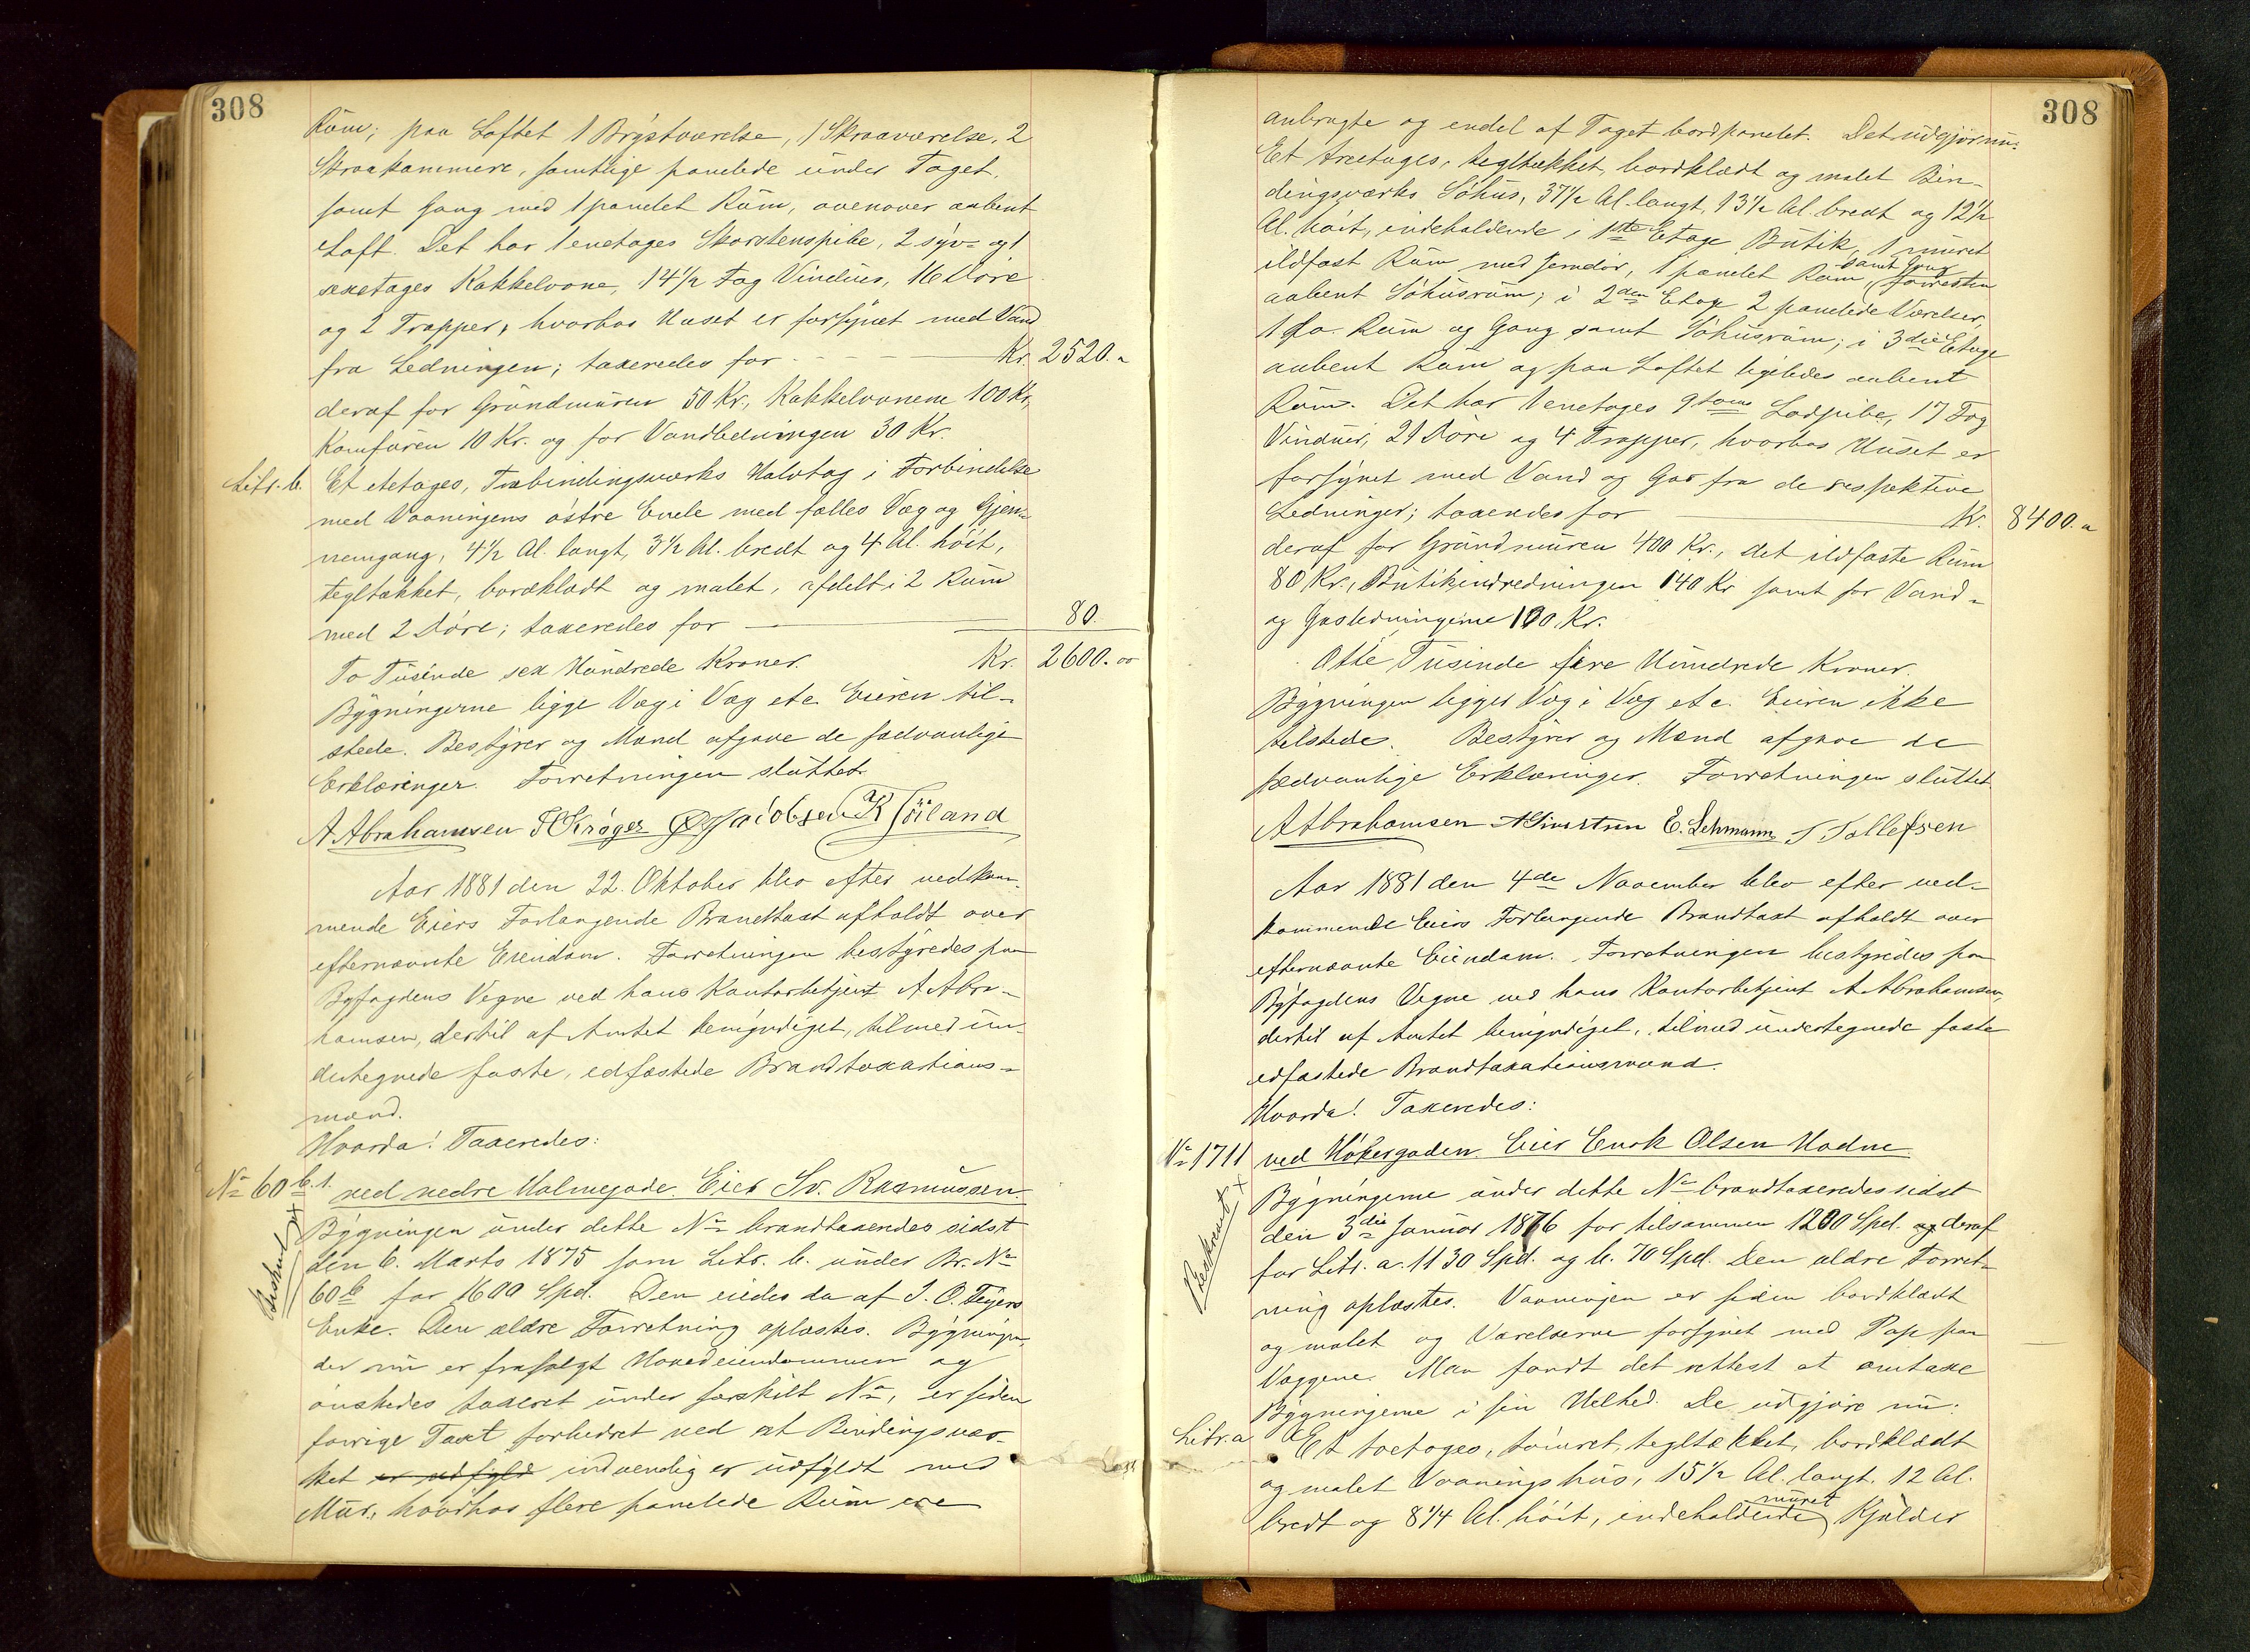 308
Rum; paa Loftet 1 Brystværelse, 1 Skraaværelse, 2
Skraakammere, samtlige panelede under Taget,
samt Gang med 1 panelet Rum, ovenover aabent
Loft. Det har 1 enetages Skorstenspibe, 2 syv- og 1
sexetages Kakkelovne, 14 1/2 Fag Vinduer, 16 Døre
og 2 Trapper, hvorhos Huset er forsynet med Vand
fra Ledningen; taxeredes for Kr. 2520.
deraf for Grundmuren 50 Kr., Kakkelovnene 100 Kr,
Komfuren 10 Kr. og for Vandledningen 30 Kr.
Litr. b. Et etetages, Træbindingsværks Halvtag i Forbindelse
med Vaaningens østre Ende med fælles Væg og Gjen-
nemgang, 4 1/2 Al. langt, 3 1/2 Al. bredt og 4 Al. høit,
tegltækket, bordklædt og malet, afdelt i 2 Rum
med 2 Døre; taxeredes for 80.
To Tusinde sex Hundrede Kroner. Kr. 2600.00
Bygningerne ligge Væg i Væg etc. Eieren til-
stede. Bestyrer og Mænd afgave de sædvanlige
Erklæringer. Forretningen sluttet.
A Abrahamsen Krøger Jacobsen K Höiland
Aar 1881 den 22. Oktober blev efter vedkom-
mende Eiers Forlangende Brandtaxt afholdt over
efternævnte Eiendom. Forretningen bestyredes paa
Byfogdens Vegne ved hans Kontorbetjent A Abra-
hamsen, dertil af Amtet bemyndiget, tilmed un-
dertegnede faste, edfæstede Brandtaxations-
mænd.
Hvorda! Taxeredes:
No 60 b.1. ved nedre Holmegade. Eier Sv. Rasmussen.
Bygningen under dette No brandtaxeredes sidst
den 6. Marts 1875 som Litr. b. under Br. No
60 b for 1600 Spd. Den eiedes da af J. O.
Enke. Den ældre Forretning oplæstes. Bygningen,
der nu er frasolgt Hovedeiendommen og
ønskedes taxeret under særskilt No, er siden
forrige Taxt forbedret ved at Bindingsvær-
ket er udfyld indvendig er udfyldt med
Mur, hvorhos flere panelede Rum ere
308
anbragte og endel af Taget bordpanelet. Det udgjør nu:
Et treetages, tegltækket, bordklædt og malet Bin-
dingsværks Søhus, 37 1/2 Al. langt, 13 1/2 Al. bredt og 12 1/2
Al. høit, indeholdende i 1ste Etage Butik, 1 muret
ildfast Rum med Jerndør, 1 panelet Rum samt Gang, forresten
aabent Søhusrum; i 2den Etage 2 panelede Værelser,
1 do. Rum og Gang samt Søhusrum; i 3die Etage
aabent Rum og paa Loftet ligeledes aabent
Rum. Det har 1 enetages 9 toms Lodpibe, 17 Fag
Vinduer, 21 Døre og 4 Trapper, hvorhos Huset er
forsynet med Vand og Gas fra de respektive
Ledninger; taxeredes for Kr. 8400.
deraf for Grundmuren 400 Kr., det ildfaste Rum
80 Kr., Butikindredningen 140 Kr samt for Vand-
og Gasledningerne 100 Kr.
Otte Tusinde fire Hundrede Kroner.
Bygningen ligger Væg i Væg etc. Eieren ikke
tilstede. Bestyrer og Mænd afgave de
sædvanlige Erklæringer. Forretningen sluttet.
A Abrahamsen E. Lehmann T Tollefsen
Aar 1881 den 4de November blev efter ved-
kommende Eiers Forlangende Brandtaxt afholdt over
efternævnte Eiendom. Forretningen bestyredes paa
Byfogdens Vegne ved hans Kontorbetjent A Abrahamsen,
dertil af Amtet bemyndiget, tilmed undertegnede faste
edfæstede Brandtaxationsmænd.
Hvorda! Taxeredes:
No 1711 ved Høkergaden. Eier Enok Olsen Hodne
Beskrevet
Bygningerne under dette No brandtaxeredes sidst
den 3die Januar 1876 for tilsammen 1200 Spd. og deraf
for Litr. a. 1130 Spd. og b. 70 Spd. Den ældre Forret-
ning oplæstes. Vaaningen er siden bordklædt
og malet og Værelserne forsynet med Pap paa
Væggene. Man fandt det rettest at omtaxe
Bygningerne i sin Helhed. De udgjøre nu:
Litr. a Et toetages, tømret, tegltækket, bordklædt
og malet Vaaningshus, 15 1/2 Al. langt, 12 Al.
bredt og 8 1/4 Al. høit, indeholdende muret Kjælder